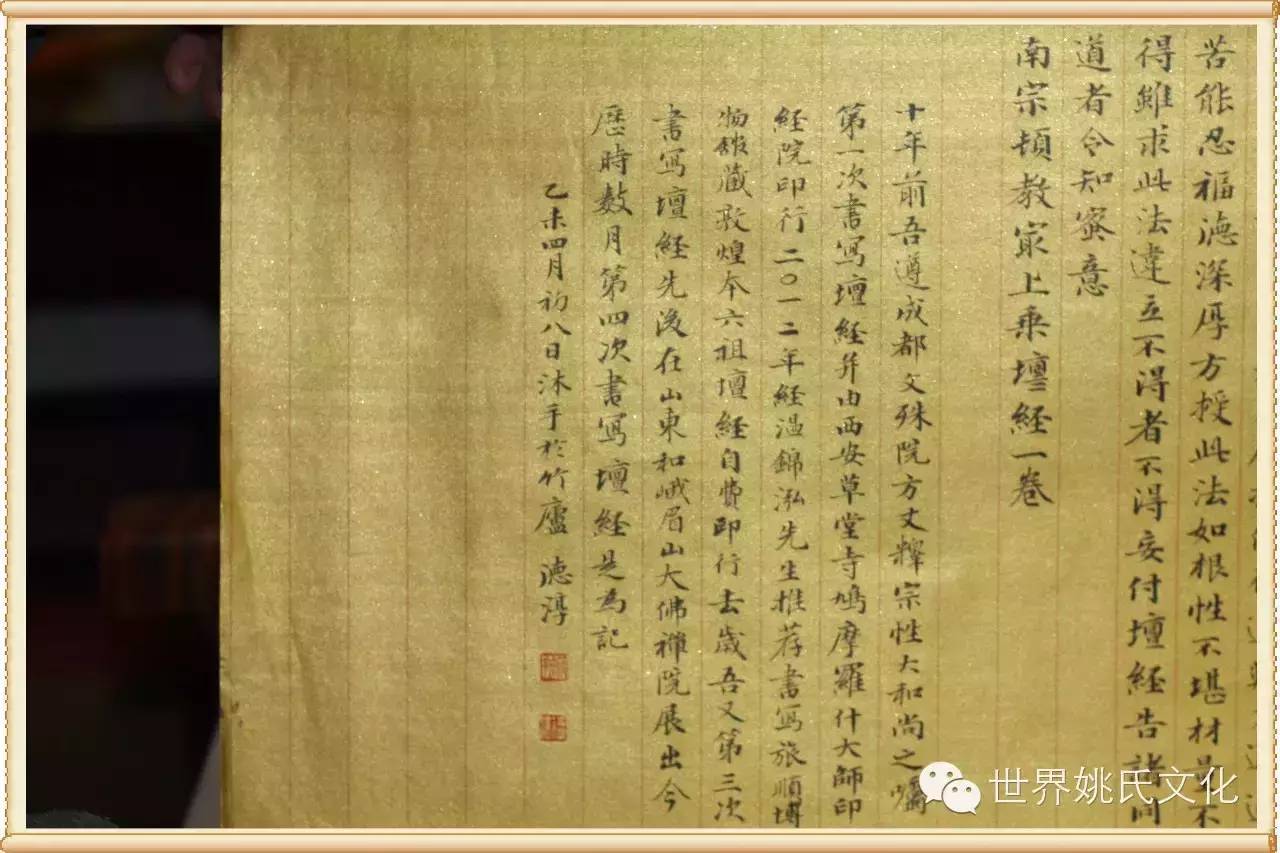 苦能忍福德深厚方授此法如根性不堪材量不
得雖求此法違立不得者不得妄付壇經告諸同
道者令知蜜意
南宗頓教冣上乘壇經一卷
十年前吾遵成都文殊院方丈釋宗性大和尚之囑
第一次書寫壇經并由西安草堂寺鳩摩羅什大師印
經院印行二〇一二年經温錦泓先生推荐書寫旅順博
物館藏敦煌本六祖壇經自費印行去歲吾又第三次
書寫壇經先後在山東和峨眉山大佛禅院展出今
歷時數月第四次書寫壇經是為記
乙未四月初八日沐手於竹廬 德淳
世界姚氏文化